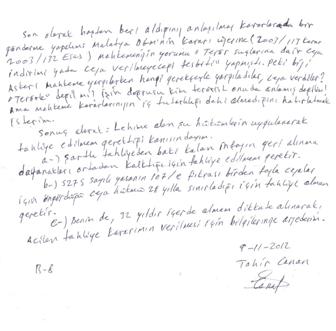 Son olarak baştan beri aldığınız anlaşılmaz kararlarda bir
gönderme yapılan Malatya DGM'nin Kararı üzerine (2003/117 karar
2003/132 Esas) mahkemeğin yorumu "Terör suçlarına dair ceza
indirimi yada ceza verilmeyeceği tespitini" yapmıştı. Peki bizi
Askeri Mahkeme yargılarken hangi gerekçeyle yargıladılar, ceza verdiler?
"Terörle" değil mi? İşin doğrusu kim terörist onu da anlamış değiliz!
Ama mahkeme kararlarının iç tutarlılığı dahi olmadığını hatırlatmak
isterim.
Sonuç olarak: Lehime olan şu hükümlerin uygulanarak
tahliye edilmem gerektiği kanısındayım:
a-) Şartlı tahliyeden bakı kalan infazın geri alınma
dayanakları ortadan kalktığı için tahliye edilmem gerekir.
b-) 5275 sayılı yasanın 107/e fıkrası birden fazla cezalar
için öngördüğü ceza hükmü 28 yılla sınırladığı için tahliye olmam
gerekir.
C-) Benim de, 32 yıldır içerde olmam dikkate alınarak,
Acilen tahliye kararının verilmesi için bilgilerinize arzederim.
9-11-2012
Tahir Canan
B-8